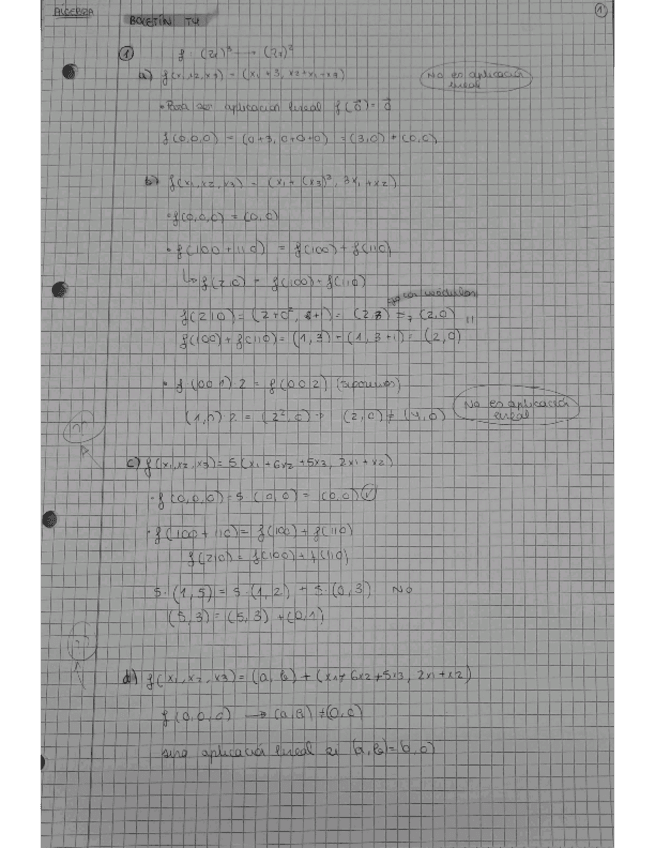 ALGEBRA
BOLETÍN T4
1
① f: (Z₇)³ → (Z₇)²
a) f(x₁,x₂,x₃) = (x₁+3, x₂+x₁+x₃)
No es aplicación lineal
• Para ser aplicación lineal f(0⃗) = 0⃗
f(0,0,0) = (0+3, 0+0+0) = (3,0) ≠ (0,0)
b) f(x₁,x₂,x₃) = (x₁+(x₃)², 3x₁+x₂)
• f(0,0,0) = (0,0)
• f(100 + 110) = f(100) + f(110)
↳ f(210) = f(100) + f(110)
f(210) = (2+0², 6+1) = (2,7) =₇ (2,0)
f(100) + f(110) = (1,3) + (1, 3+1) = (2,0)
• f(001) 2 = f(002)
(1,0) 2 = (2², 0) → (2,0) ≠ (4,0)
No es aplicación lineal
c) f(x₁,x₂,x₃) = 5(x₁+6x₂+5x₃, 2x₁+x₂)
• f(0,0,0) = 5 (0,0) = (0,0)
• f(100 + 110) = f(100) + f(110)
f(210) = f(100) + f(110)
5·(1,5) = 5·(1,2) + 5·(0,3) No
(5,3) = (5,3) + (0,1)
d) f(x₁,x₂,x₃) = (a,b) + (x₁+6x₂+5x₃, 2x₁+x₂)
f(0,0,0) → (a,b) ≠ (0,0)
sera aplicación lineal si (a,b) = (0,0)